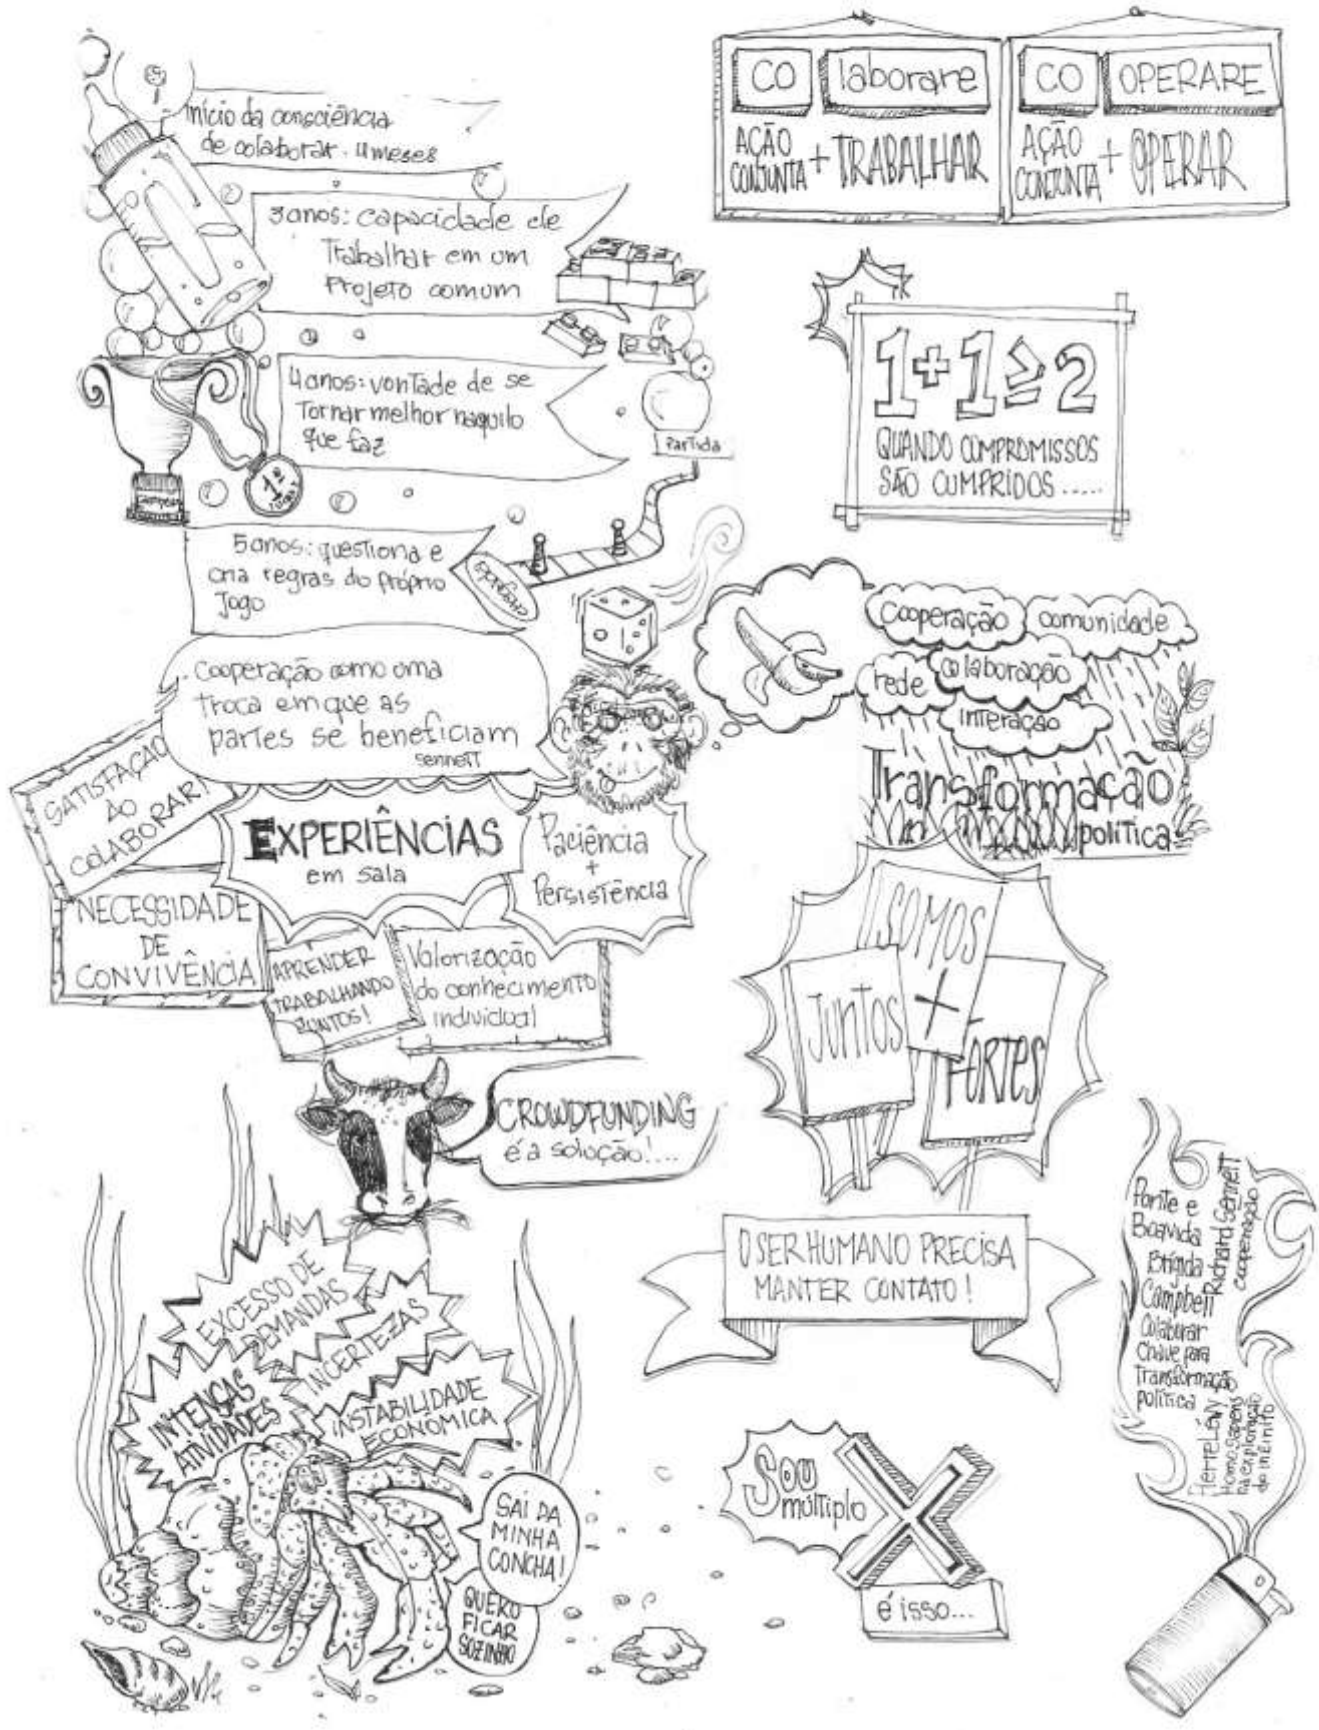 Início da consciência
de colaborar. 4 meses
3 anos: capacidade de
Trabalhar em um
Projeto comum
4 anos: vontade de se
Tornar melhor naquilo
que faz
1º
Partida
5 anos: questiona e
cria regras do próprio
Jogo
chegada
Cooperação como uma
troca em que as
partes se beneficiam
sennett
SATISFAÇÃO
AO
COLABORAR!
EXPERIÊNCIAS
em sala
Paciência
+
Persistência
NECESSIDADE
DE
CONVIVÊNCIA
APRENDER
TRABALHANDO
JUNTOS!
Valorização
do conhecimento
individual
CROWDFUNDING
é a solução!....
EXCESSO DE
DEMANDAS
INCERTEZAS
INTENÇAS
ATIVIDADES
INSTABILIDADE
ECONÔMICA
SAI DA
MINHA
CONCHA!
QUERO
FICAR
SOZINHO
CO laborare
AÇÃO
CONJUNTA + TRABALHAR
CO OPERARE
AÇÃO
CONJUNTA + OPERAR
1+1≥2
QUANDO COMPROMISSOS
SÃO CUMPRIDOS .....
Cooperação
comunidade
rede
colaboração
interação
Transformação
política
SOMOS
+
Juntos
FORTES
O SER HUMANO PRECISA
MANTER CONTATO!
Sou
múltiplo
X
é isso...
Ponte e
Boavida
Brígida
Campbell
Colaborar
Chave para
Transformação
política
Richard Sennett
cooperação
Pierre Lévy
Homo sapiens
na exploração
do infinito